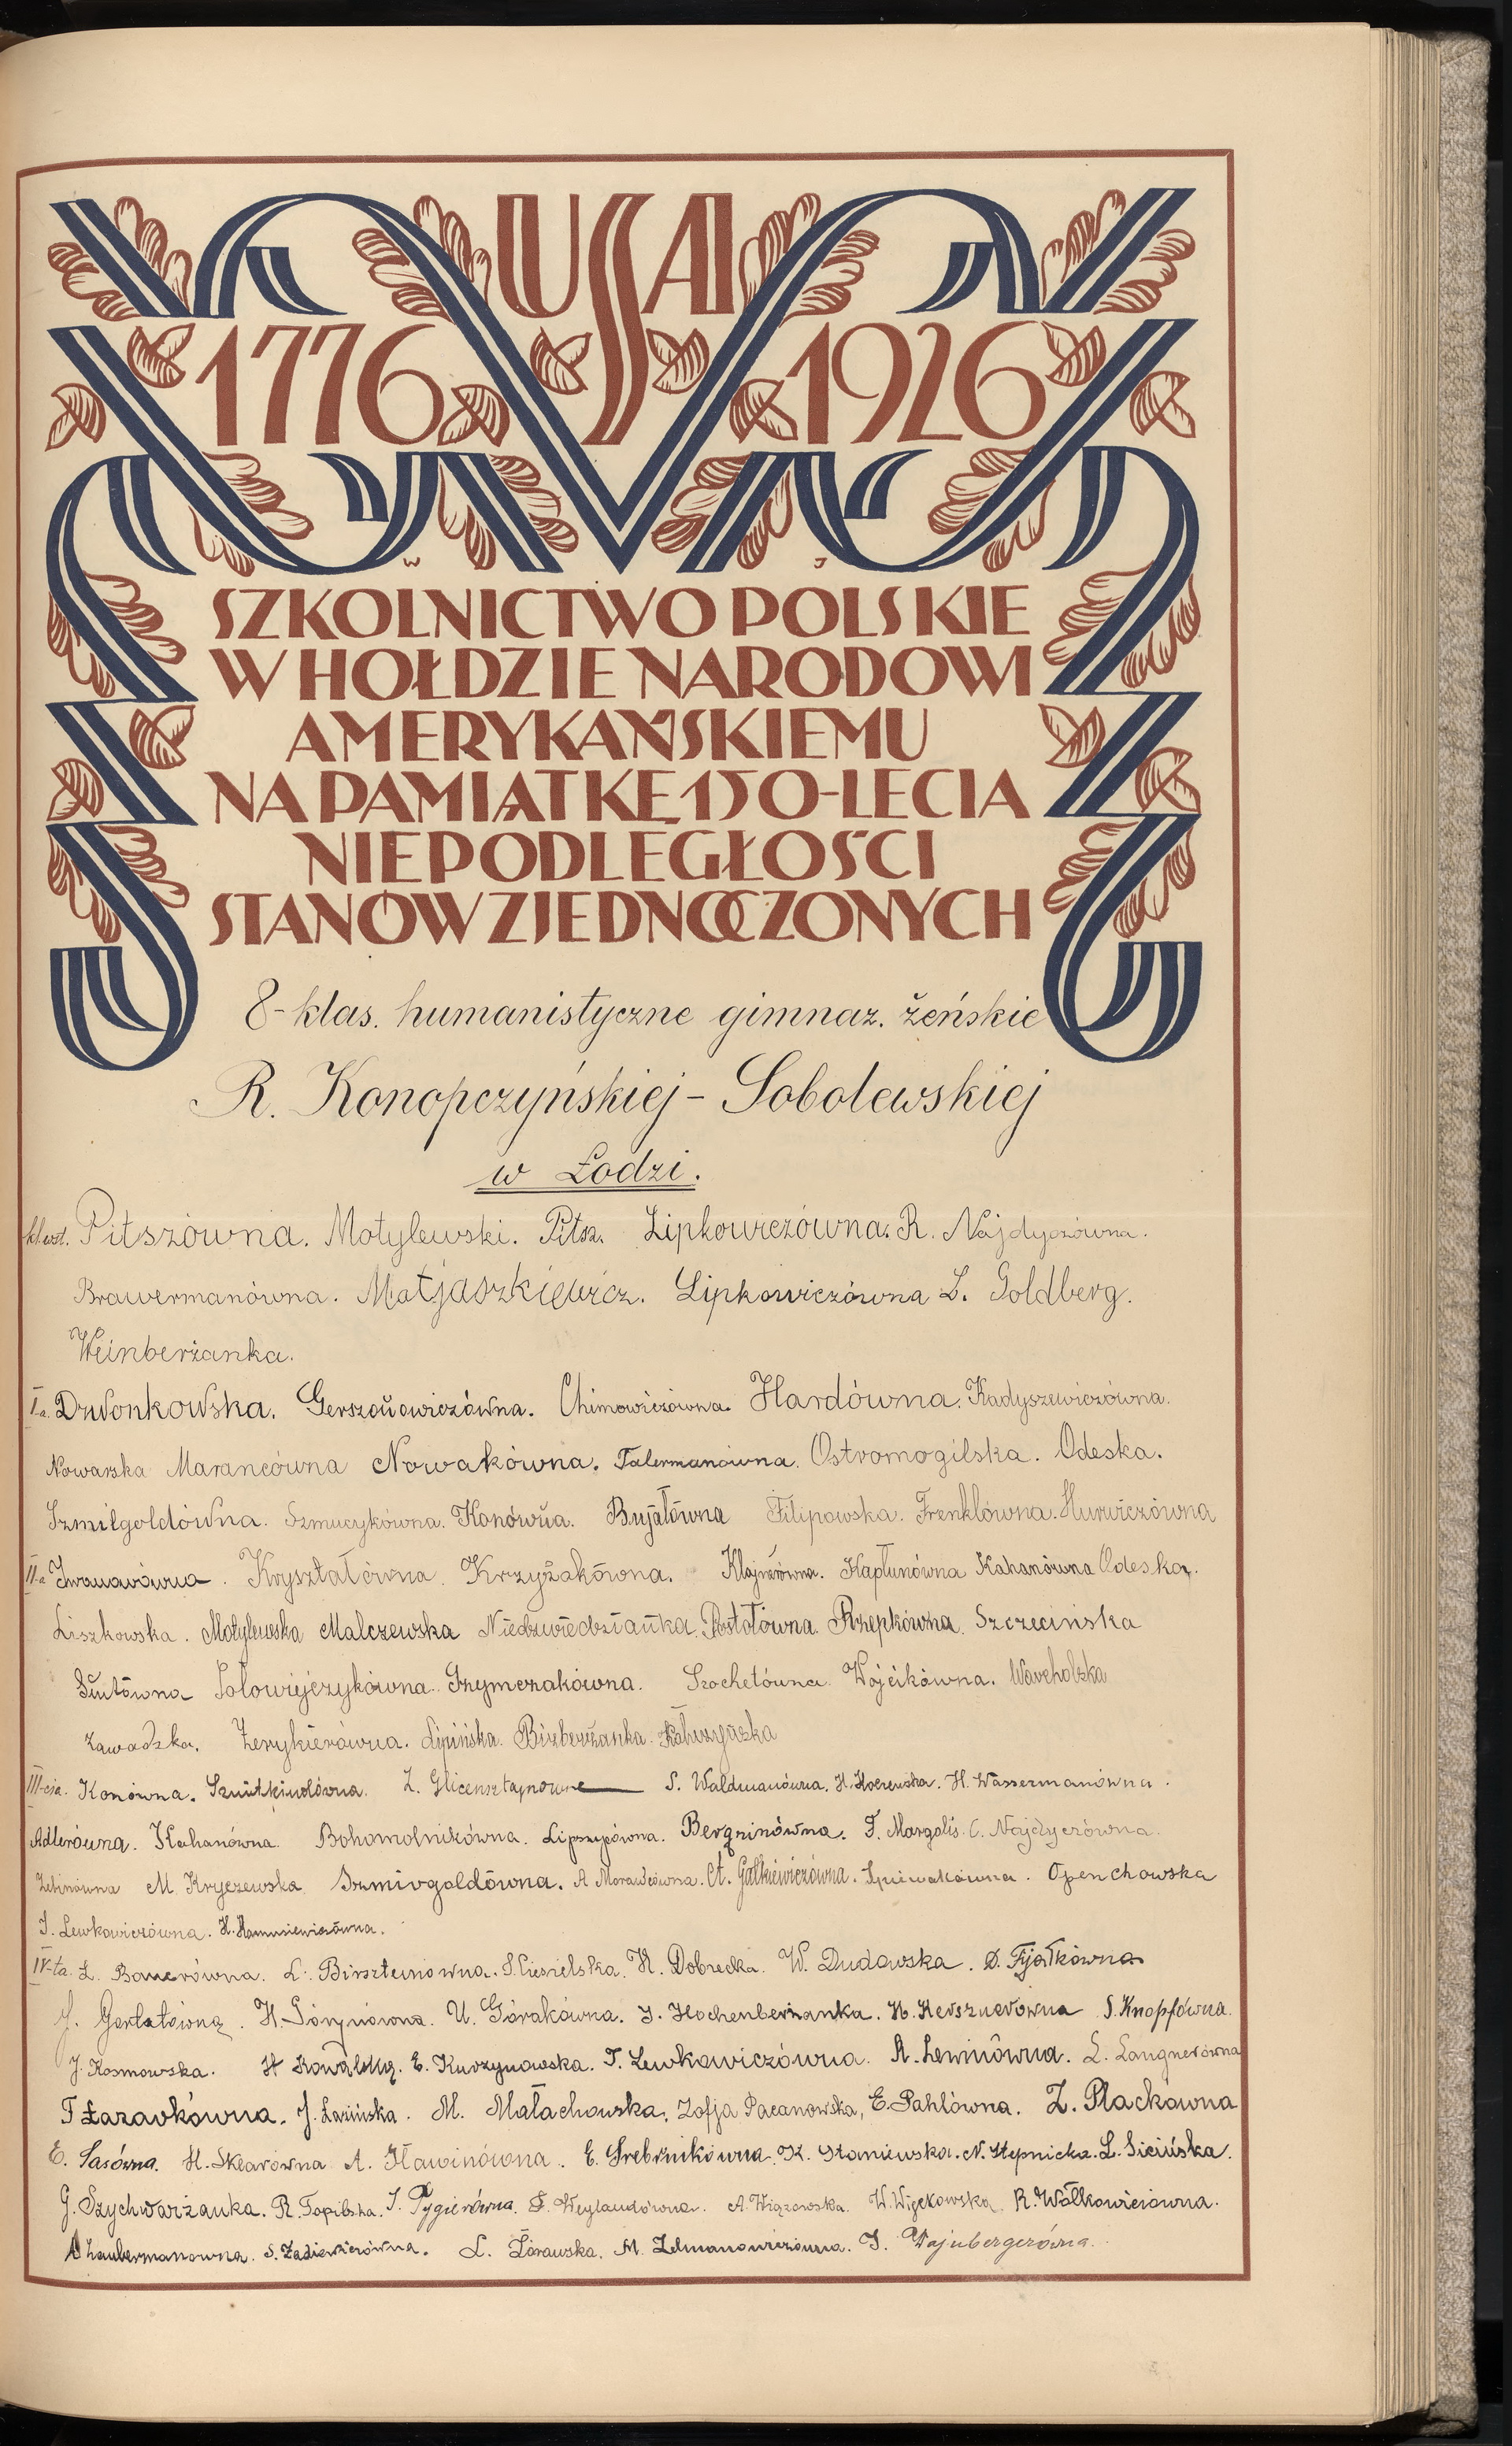 USA
1776 1926
W J
SZKOLNICTWO POLSKIE
W HOŁDZIE NARODOWI
AMERYKAŃSKIEMU
NA PAMIĄTKĘ 150-LECIA
NIEPODLEGŁOŚCI
STANÓW ZJEDNOCZONYCH
8-klas. humanistyczne gimnaz. żeńskie
R. Konopczyńskiej - Sobolewskiej
w Łodzi.
kl. wst. Pitszówna. Motylewski. Pitsz. Lipkowiczówna. R. Najdyczówna.
Brawermanówna. Matjaszkiewicz. Lipkowiczówna L. Goldberg.
Weinberżanka.
I-a. Dzwonkowska. Gerszonowiczówna. Chimowiczówna. Hardówna. Kadyszewiczówna.
Nowarska Marancówna Nowakówna. Talermanówna. Ostromogilska. Odeska.
Szmilgoldówna. Szmucykówna. Konówna. Bujałówna Filipowska. Frenklówna. Hurwiczówna
II-a Iwanowówna. Kryształówna. Krzyżakówna. Klajnerówna. Kapłunówna Kahanówna Odeska.
Liszkowska. Motylewska Malczewska Niedzwiedzianka. Postołówna. Rzepkówna. Szczecińska
Sołowiejczykówna. Szymczakówna. Szochetówna Wójcikówna. Wareholzka
Zawadzka. Zerykierówna. Lipińska. Birberżanka. Kałuzyńska
III-cia. Konówna. Szmitkindówna. L. Glicensztajnowne S. Waldmanówna. H. Wassermanówna.
Adlerówna. Kahanówna. Bohomolnikówna. Lipszycówna. Bergzinówna. F. Margolis. C. Najdyczówna.
M. Kryczewska Szmirgoldówna. A Morawcówna. A. Gałkiewiczówna. Śpiewakówna. Openchowska
I. Lewkowiczówna. H. Hamusiewiczówna.
IV-ta. L. Bauerówna. L. Birszteinówna. S. Ciesielska. H. Dobrecka. W. Dudowska. D. Fijałkówna
J. Gertatówna. H. Górynówna. U. Górakówna. I. Hochenberżanka. H. Kersznerówna S. Knopfówna.
J. Kosmowska. H Kowalska. E. Kurzynowska. T. Lewkowiczówna. A. Lewinówna. L. Langnerówna
T Łazarkówna. J. Łazińska. M. Małachowska. Zofja Pacanowska, E. Pahlówna. Z. Plackówna
E. Sasówna. H. Sklarówna A. Sławinówna. E. Srebrnikówna. K. Staniewska. N. Stępnicka. L. Sicińska.
G. Szychwarżanka. R. Topilska. I. Pygierówna. F. Weylandówna. A. Wiązowska. W. Więckowska R. Wołkowiczówna.
S. Zadziewiczówna. L. Żórawska. M. Zelmanowiczówna. I. Wajnbergerówna.